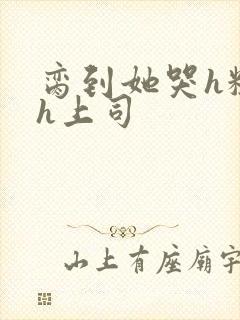 脔到她哭h粗
h上司
山上有座庙宇